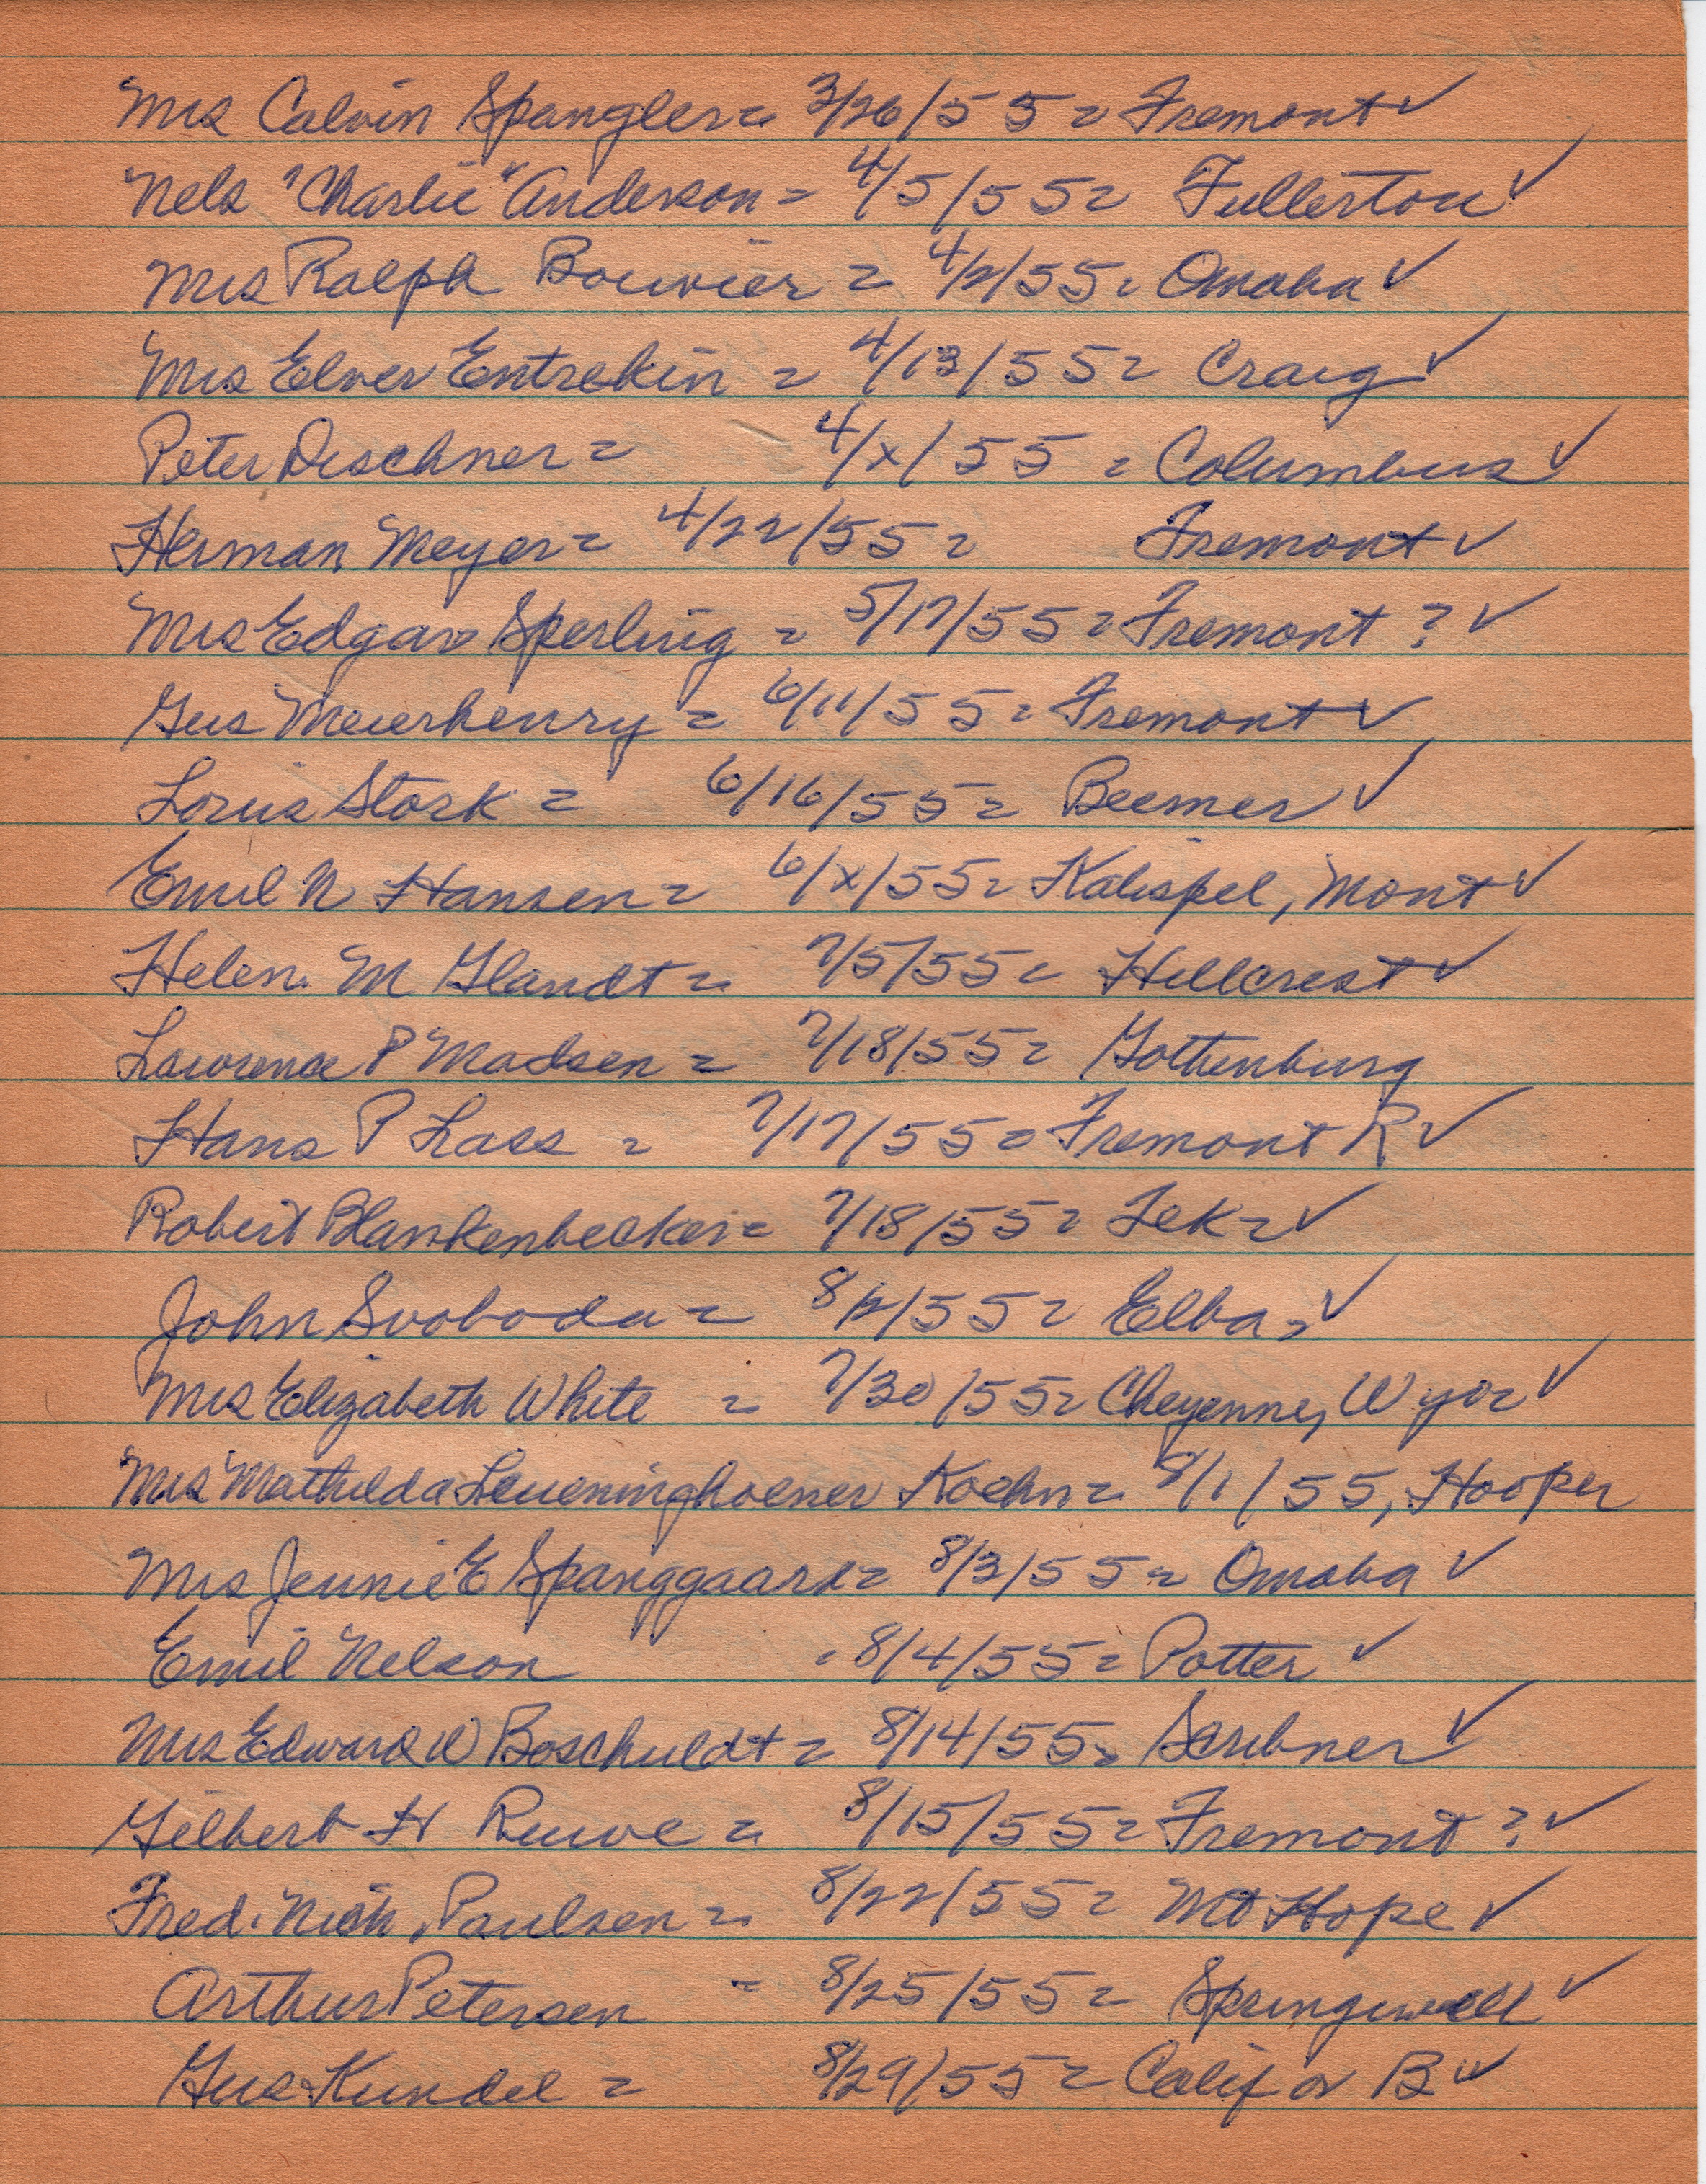 Mrs Calvin Spangler = 3/26/55 = Fremont ✓
Nels "Charlie" Anderson = 4/5/55 = Fullerton ✓
Mrs Ralph Bouvier = 4/2/55 = Omaha ✓
Mrs Elver Entrekin = 4/13/55 = Craig ✓
Peter Deschner = 4/x/55 = Columbus ✓
Herman Meyer = 4/22/55 = Fremont ✓
Mrs Edgar Sperling = 5/17/55 = Fremont ? ✓
Gus Meierhenry = 6/11/55 = Fremont ✓
Louis Stork = 6/16/55 = Beemer ✓
Emil N Hansen = 6/x/55 = Kalispel, Mont ✓
Helen M Glandt = 7/5/55 = Hillcrest ✓
Lawrence P Madsen = 7/18/55 = Gothenburg
Hans P Lass = 7/17/55 = Fremont R ✓
Robert Blankenbecker = 7/18/55 = Tek = ✓
John Svoboda = 8/2/55 = Elba, ✓
Mrs Elizabeth White = 7/30/55 = Cheyenne, Wyo = ✓
Mrs Mathilda Leueninghoener Koehn = 8/1/55, Hooper
Mrs Jennie E Spanggaard = 8/3/55 = Omaha ✓
Emil Nelson = 8/4/55 = Potter ✓
Mrs Edward W Boschuldt = 8/14/55 = Scribner ✓
Gilbert H Ruwe = 8/15/55 = Fremont ? ✓
Fred. Paulsen = 8/22/55 = Mt Hope ✓
Arthur Petersen = 8/25/55 = Springwell ✓
Gus Kundel = 8/29/55 = Calif or B ✓